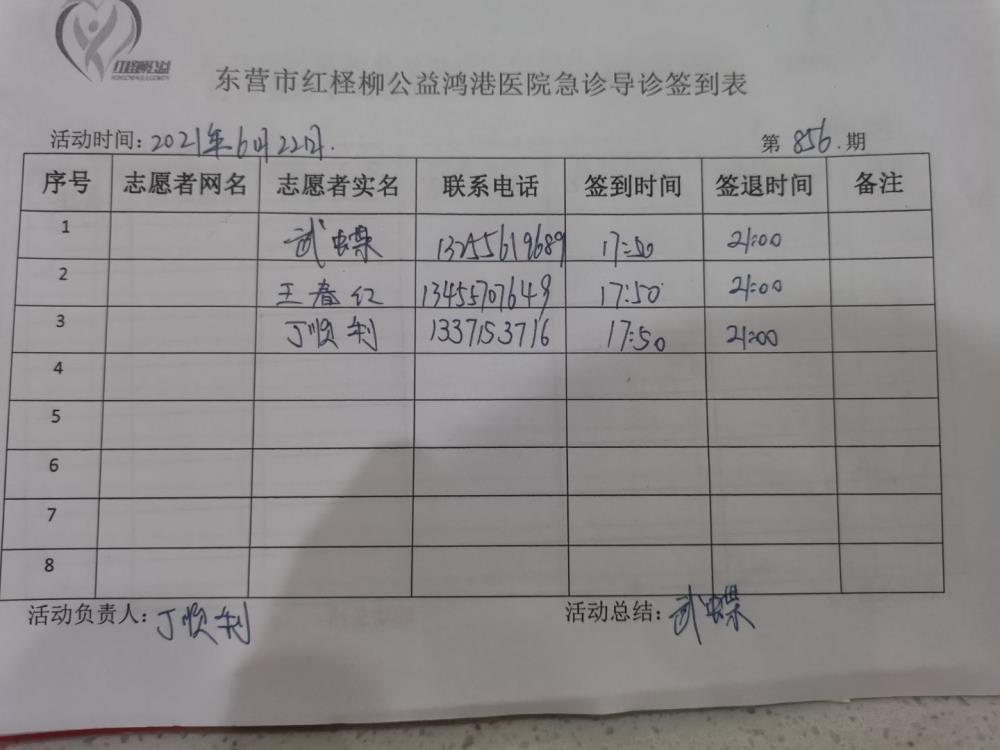 红柽柳公益
东营市红柽柳公益鸿港医院急诊导诊签到表
活动时间:2021年6月22日. 第856.期
序号 志愿者网名 志愿者实名 联系电话 签到时间 签退时间 备注
1 武蝶 13255619689 17:50 21:00
2 王春红 13455707649 17:50 21:00
3 丁顺利 1337153716 17:50 21:00
4
5
6
7
8
活动负责人:丁顺利 活动总结:武蝶